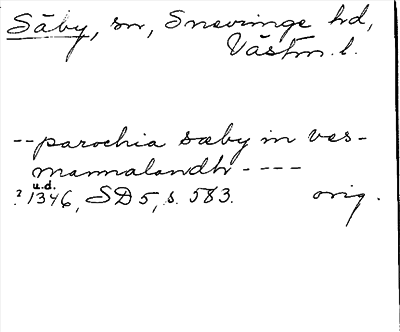 Säby, sn, Snevringe hd,
Västm. l.
-- parochia sæby in ves-
mannalandh ----
u.d.
? 1346, SD 5, s. 583. orig.